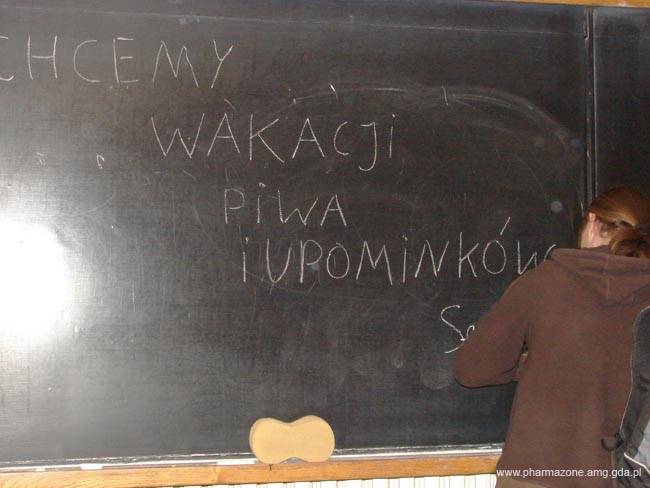 CHCEMY
WAKACJI
PIWA
I UPOMINKÓW
www.pharmazone.amg.gda.pl